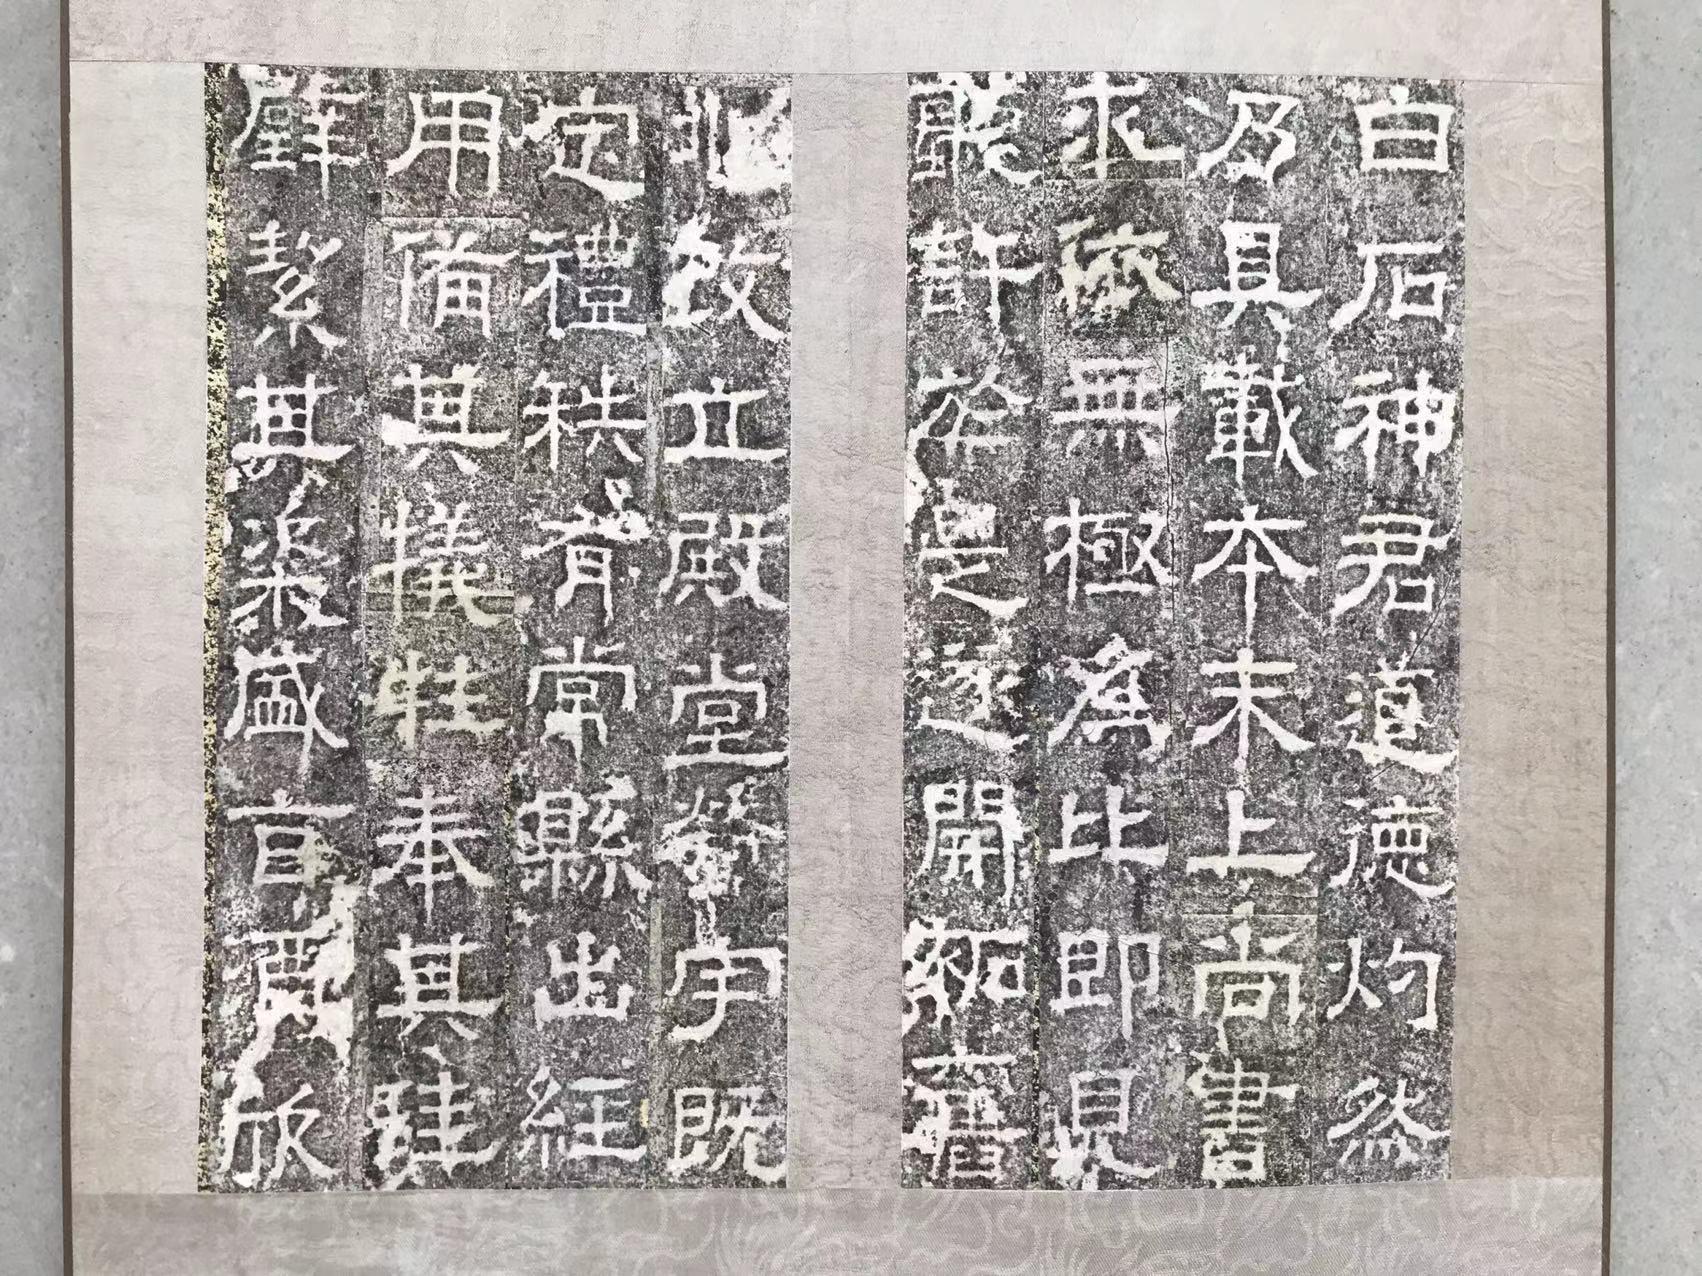 白石神君道德灼然
乃具載本末上尚書
求依無極為比即見
聽許於是遂開拓舊
兆改立殿堂營宇既
定禮秩有常縣出經
用備其犧牲奉其珪
璧絜其粢盛旨酒欣